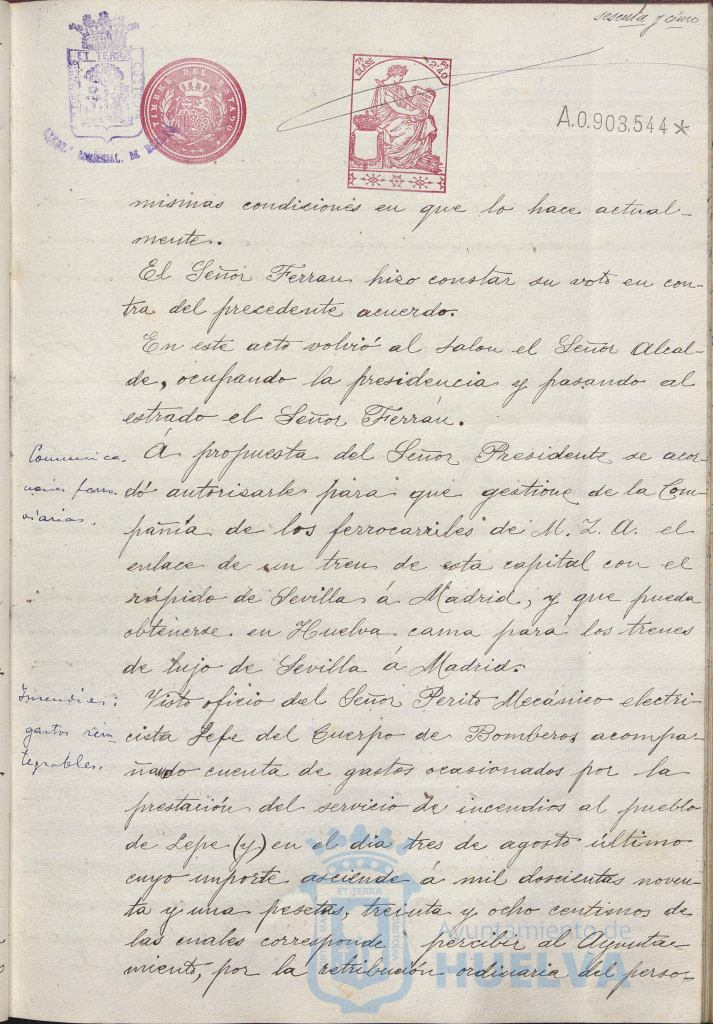 sesenta y cinco
ET TERRA
TIMBRE DEL ESTADO
7ª CLASE
Pts 2'40
A.0.903,544 *
mismas condiciones en que lo hace actual-
mente.
El Señor Ferran hizo constar su voto en con-
tra del precedente acuerdo.
En este acto volvió al salon el Señor Alcal-
de, ocupando la presidencia y pasando al
estrado el Señor Ferrán.
Comunica-
ciones ferro-
viarias.
Á propuesta del Señor Presidente se acor-
dó autorisarle para que gestione de la Com-
pañia de los ferrocarriles de M. Z. A. el
enlace de un tren de esta capital con el
rápido de Sevilla á Madrid, y que pueda
obtenerse en Huelva cama para los trenes
de lujo de Sevilla á Madrid.
Incendios:
gastos rein-
tegrables.
Visto oficio del Señor Perito Mecánico electri-
cista Jefe del Cuerpo de Bomberos acompa-
ñando cuenta de gastos ocasionados por la
prestación del servicio de incendios al pueblo
de Lepe (y) en el dia tres de agosto último
cuyo importe asciende á mil doscientas noven-
ta y una pesetas, treinta y ocho centimos de
las cuales corresponde percibir al Ayunta-
miento, por la retribución ordinaria del perso-
ET TERRA
Ayuntamiento de
HUELVA